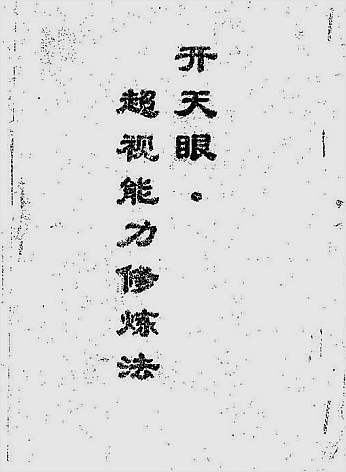 开天眼。
超视能力修炼法